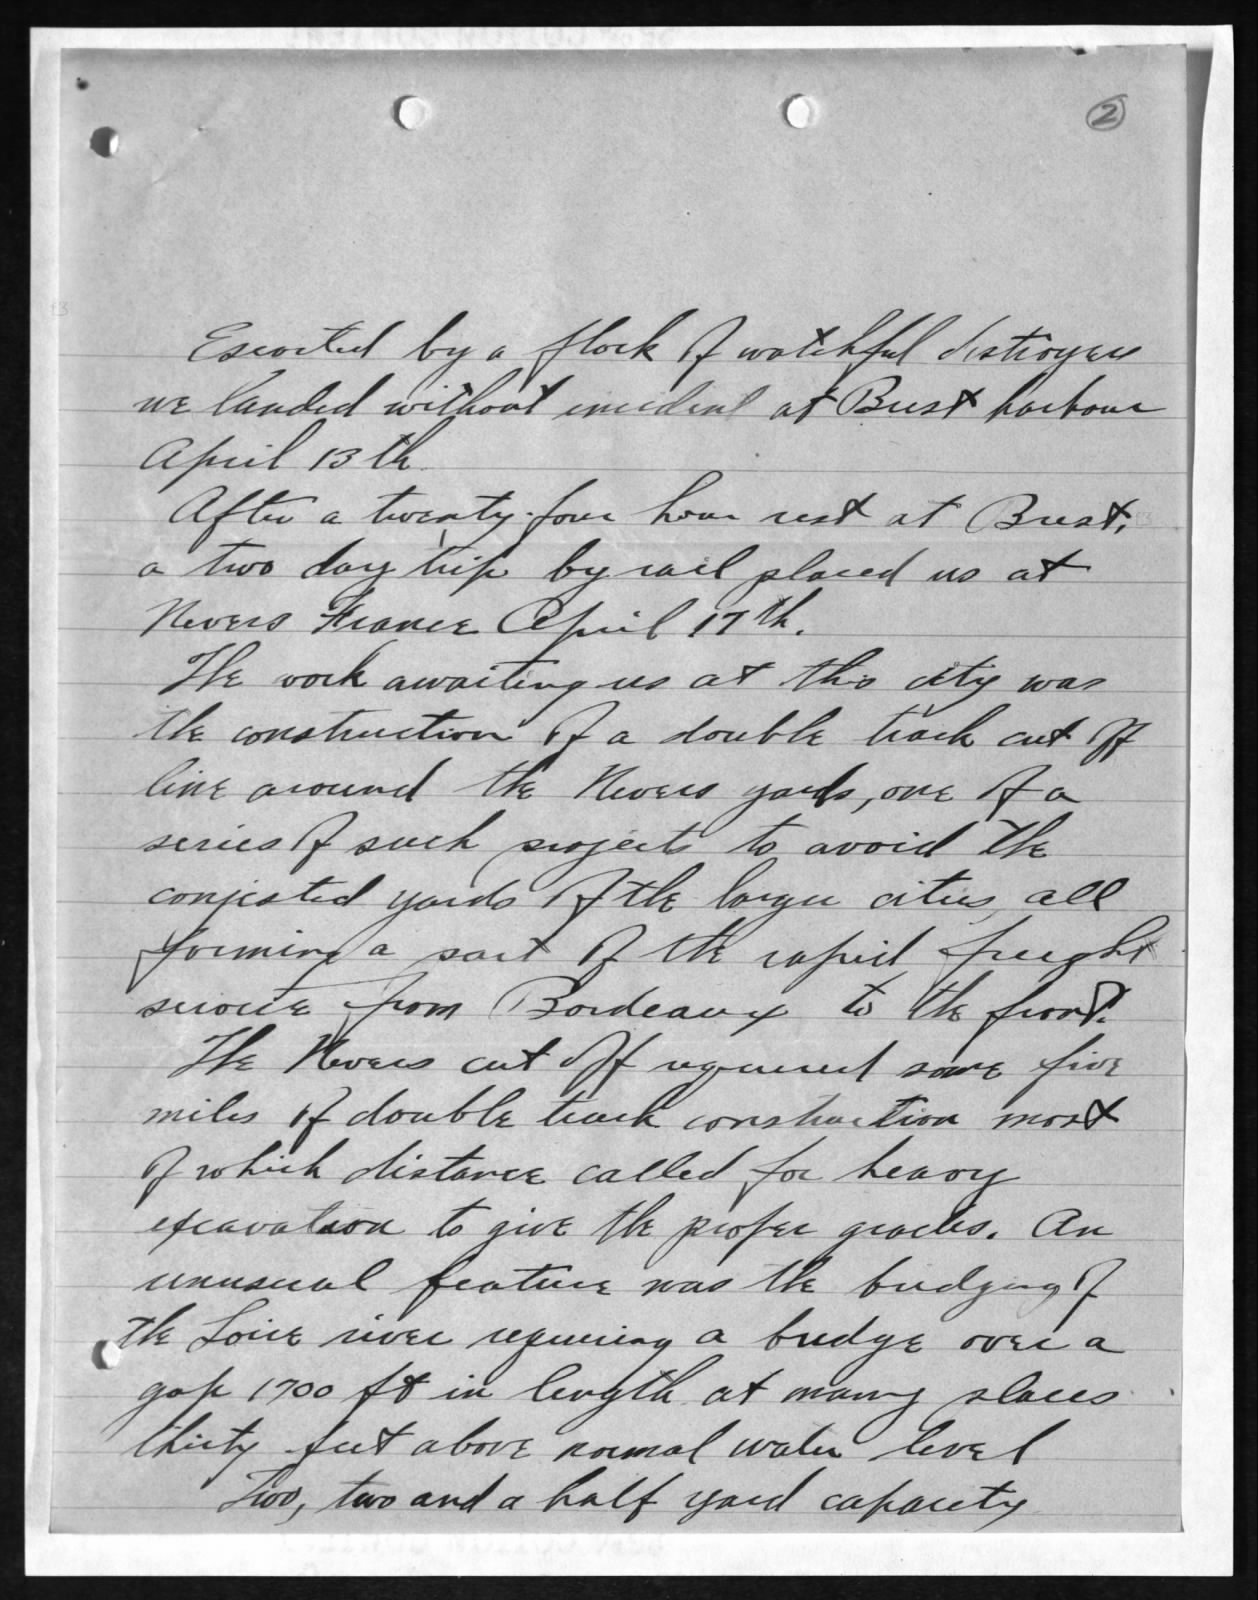 2
Escorted by a flock of watchful distroyers
we landed without incident at Brest harbour
April 13th
After a twenty-four hour rest at Brest,
a two day trip by rail placed us at
Nevers France April 17th.
The work awaiting us at this city was
the construction of a double track cut off
line around the Nevers yards, one of a
series of such projects to avoid the
conjested yards of the larger cities all
forming a part of the rapid freight
service from Bordeaux to the front.
The Nevers cut off required some five
miles of double track construction most
of which distance called for heavy
excavation to give the proper grades. An
unusual feature was the bridging of
the Loire river requiring a bridge over a
gap 1700 ft in length at many places
thirty feet above normal water level
Two, two and a half yard capacity